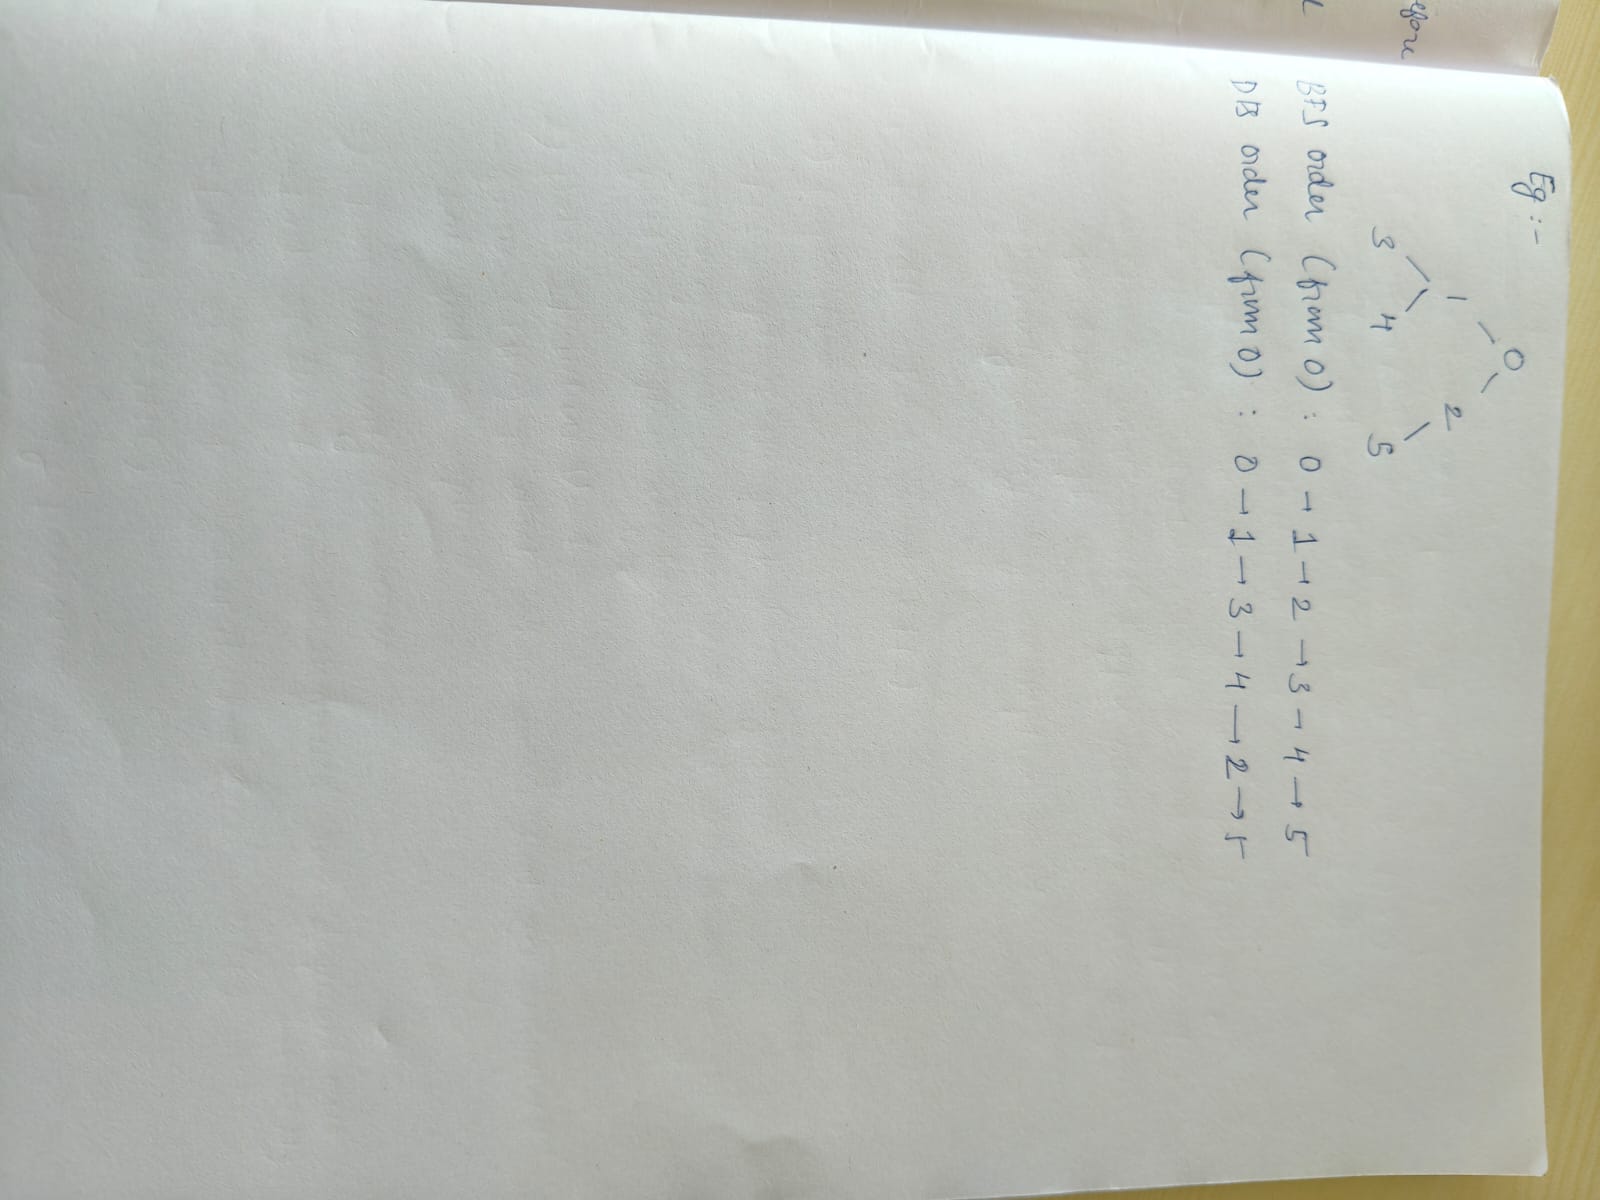 efore
Eg :-
0
1 2
3 4 5
BFS order (from 0) : 0 → 1 → 2 → 3 → 4 → 5
DFS order (from 0) : 0 → 1 → 3 → 4 → 2 → 5